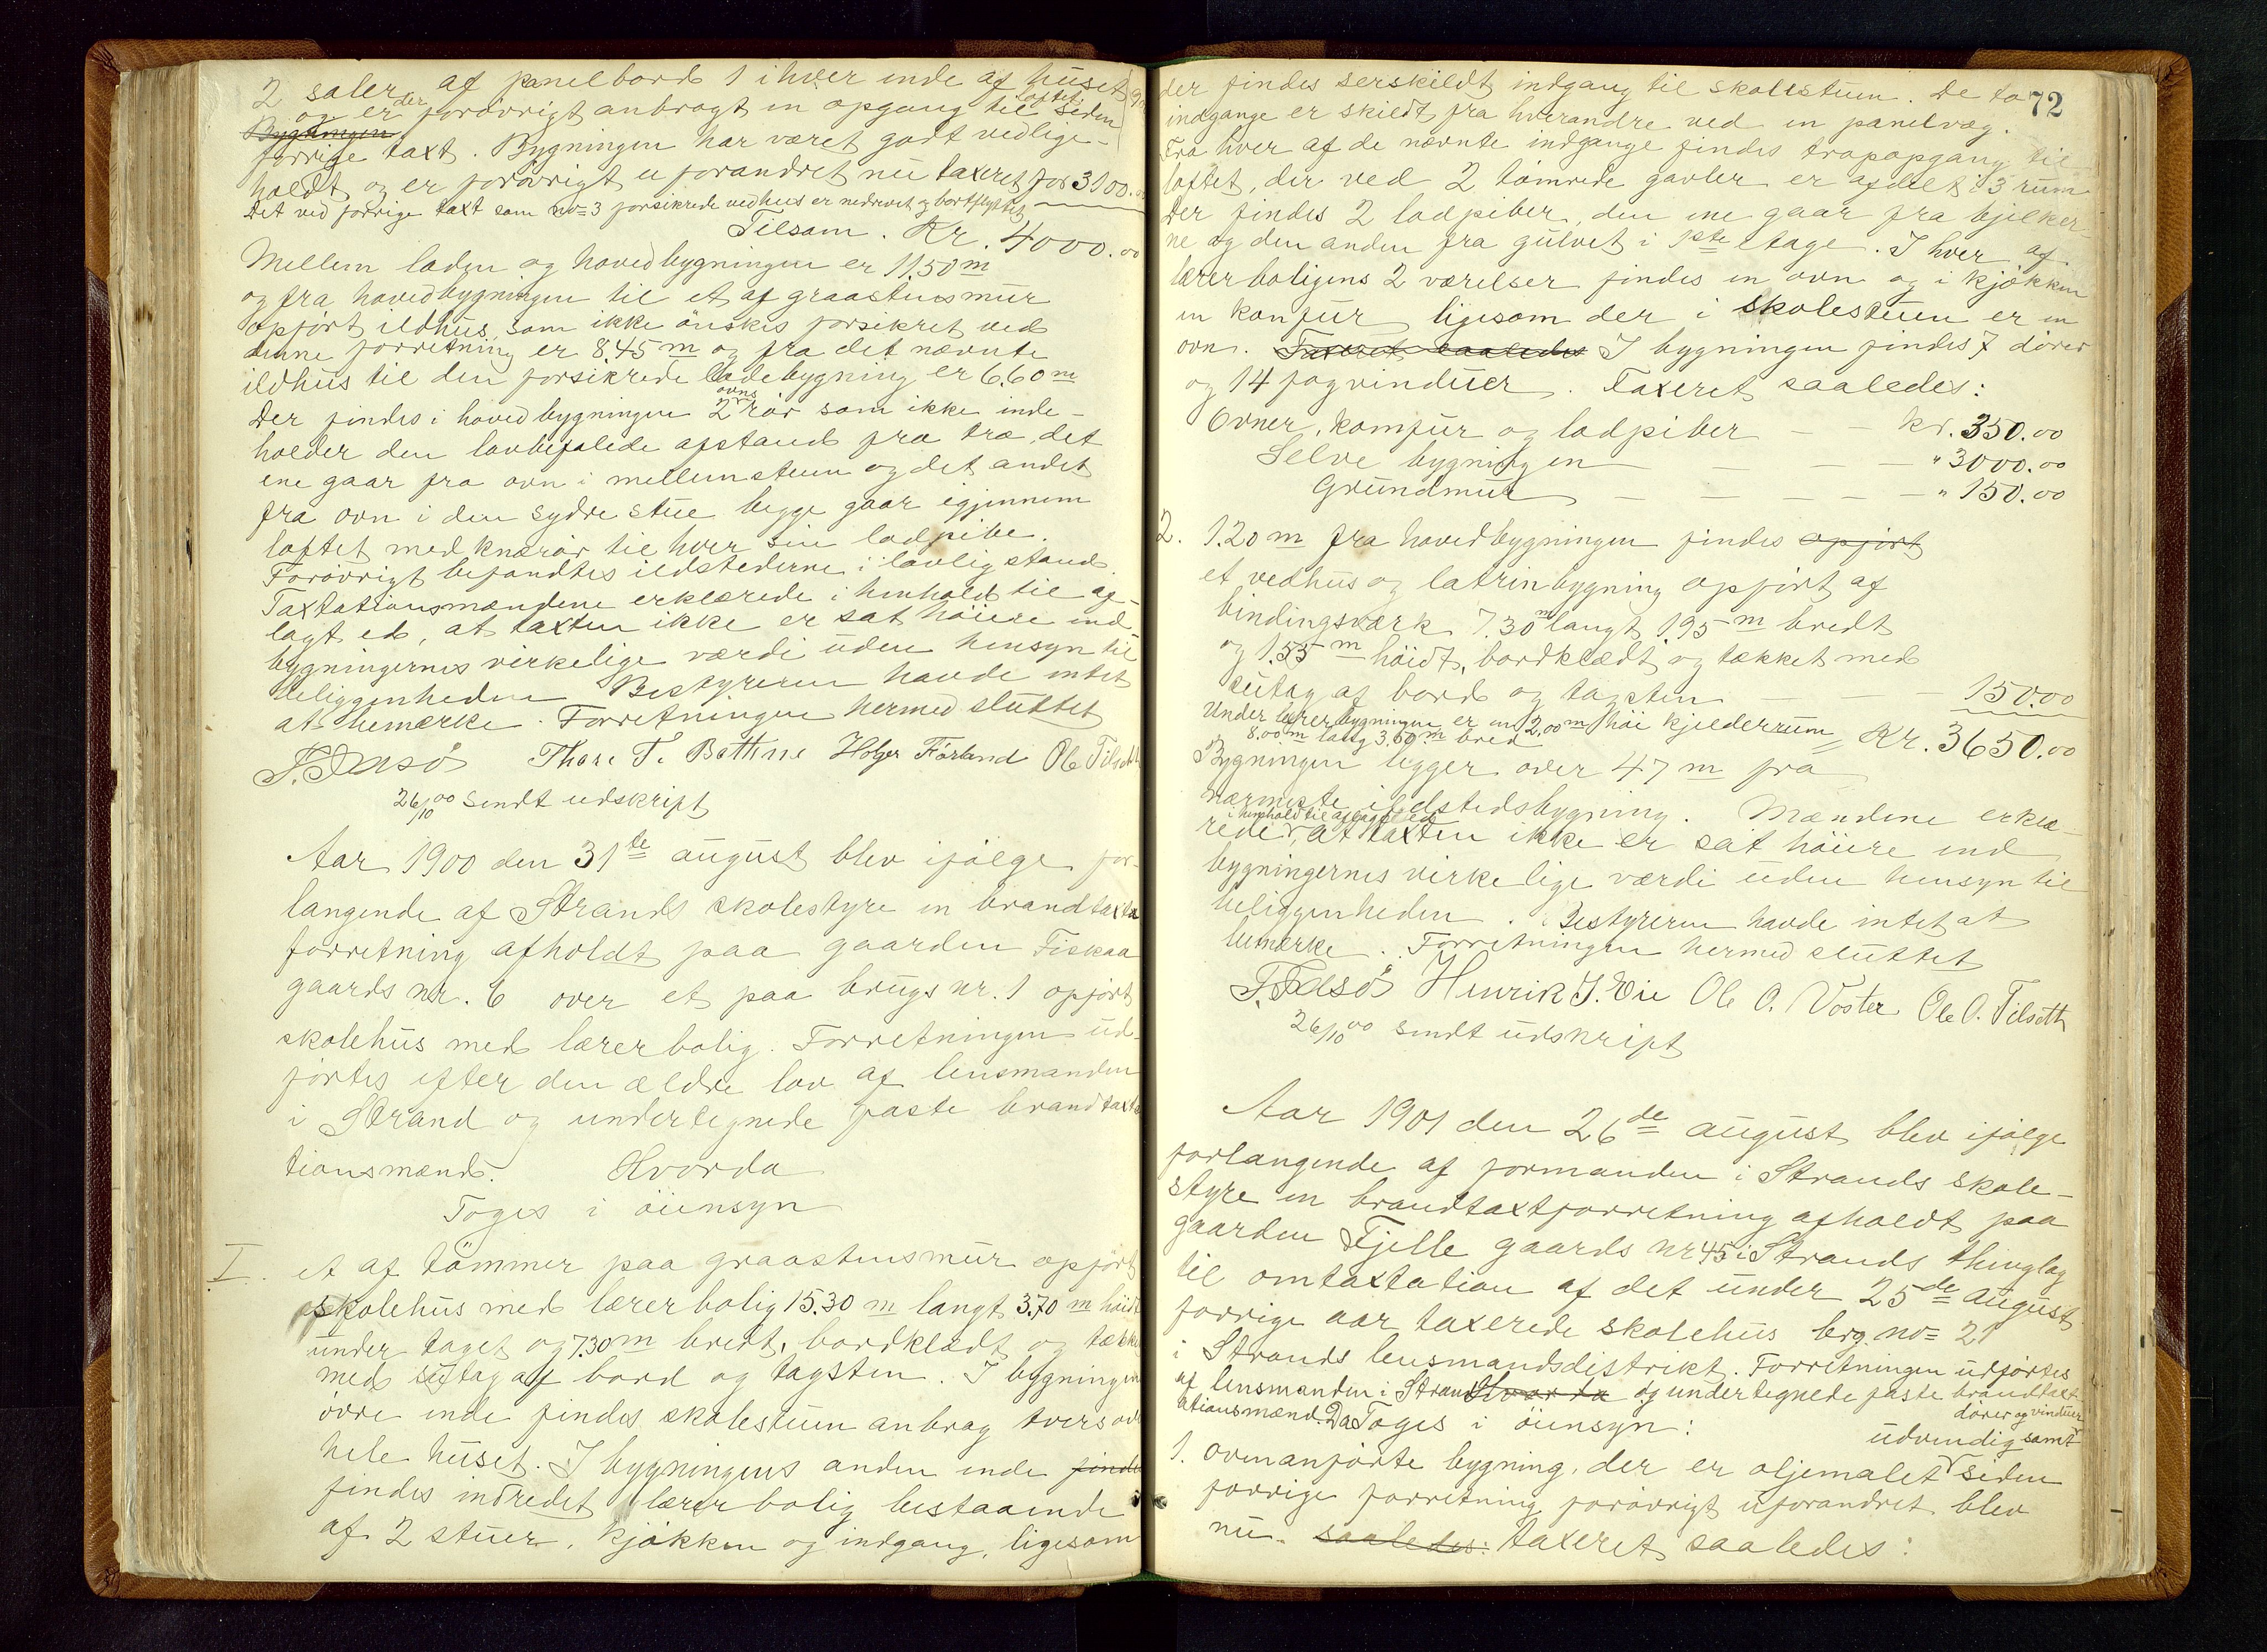 2 saler af panelbord 1 i hver ende af huset
og er der forövrigt anbragt en opgang til loftet siden
Bygningen
forrige taxt. Bygningen har været godt vedlige-
holdt og er forövrigt uforandret nu taxeret for 3100.00
Det ved forrige taxt som no= 3 forsikrede vedhus er nedrevet og bortflyttet
Tilsam. Kr. 4000.00
Mellem laden og hovedbygningen er 11,50 m
og fra hovedbygningen til et af graastensmur
opfört ildhus, som ikke önskes forsikret ved
denne forretning er 8,45 m og fra det nævnte
ildhus til den forsikrede ladebygning er 6,60 m
Der findes i hovedbygningen 2 ovns rör som ikke inde-
holder den lovbefalede afstand fra træ, det
ene gaar fra ovn i mellemstuen og det andet
fra ovn i den sydre stue begge gaar igjennem
loftet med knærör til hver sin ladpibe.
Forövrigt befandtes ildstederne i lovlig stand.
Taxtationsmændene erklærede i henhold til af-
lagt ed, at taxten ikke er sat höiere end
bygningernes virkelige værdi uden hensyn til
beliggenheden. Bestyreren havde intet
at bemærke. Forretningen hermed sluttet
T. Tasö Thore T. Bottne Holger Förland Ole Tilseth
26/10 00 sendt udskript
Aar 1900 den 31te august blev ifölge for-
langende af Strands skolestyre en brandtaxta
forretning afholdt paa gaarden Fiskaa
gaards nr. 6 over et paa brugs nr. 1 opfört
skolehus med lærerbolig. Forretningen ud-
förtes efter den ældre lov af lensmanden
i Strand og undertegnede faste brandtaxta
tionsmænd. Hvorda
Toges i öiensyn
I. et af tömmer paa graastensmur opfört
skolehus med lærerbolig 15.30 m langt 3.70 m höidt
under taget og 7.30 m bredt, bordklædt og tække
med sutag af bord og tagsten. I bygningens
övre ende findes skolestuen anbrag tvers over
hele huset. I bygningens anden ende finde
findes indredet lærerbolig bestaaende
af 2 stuer, kjökken og indgang, ligesom
72
der findes serskildt indgang til skolestuen. De to
indgange er skildt fra hverandre ved en panelvæg.
Fra hver af de nævnte indgange findes trapopgang til
loftet, der ved 2 tömrede gavler er afdelt i 3 rum
Der findes 2 ladpiber, den ene gaar fra bjelker
ne og den anden fra gulvet i 1ste etage. I hver af
lærerboligens 2 værelser findes en ovn og i kjökken
en komfur ligesom der i skolestuen er en
ovn. Taxeret saaledes I bygningen findes 7 dörer
og 14 fag vinduer. Taxeret saaledes:
Ovner, komfur og ladpiber — — kr. 350.00
Selve bygningen — — — " 3000.00
Grundmur — — — — " 150.00
2. 1.20 m fra hovedbygningen findes opfört
et vedhus og latrinbygning opfört af
bindingsværk 7.30 m langt 1.95 m bredt
og 1.55 m höidt, bordklædt og tækket med
sutag af bord og tagsten — — — 150.00
Under lærerbygningen er en 2,00 m höi kjelderrum
8.00 m lang 3.60 m bred Kr. 3650.00
Bygningen ligger over 47 m fra
nærmeste ildstedsbygning. Mændene erklæ-
i henhold til aflagt ed
rede, at taxten ikke er sat höiere end
bygningernes virkelige værdi uden hensyn til
beliggenheden. Bestyreren havde intet at
bemærke. Forretningen hermed sluttet
T. Tasö Henrik J. Eie Ole O. Voster Ole O. Tilseth
26/10 00 sendt udskript
Aar 1901 den 26de august blev ifölge
forlangende af formanden i Strands skole-
styre en brandtaxtforretning afholdt paa
gaarden Fjelle gaards nr 45 i Strands thinglag
til omtaxtation af det under 25de august
forrige aar taxerede skolehus brg. no= 21
i Strands lensmandsdistrikt. Forretningen udförtes
af lensmanden i Strand Hvorda og undertegnede faste brandtaxt-
ationsmænd. Da Toges i öiensyn:
dörer og vinduer
udvendig samt
1. ovenanförte bygning, der er oljemalet siden
forrige forretning forövrigt uforandret blev
nu. saaledes: taxeret saaledes: